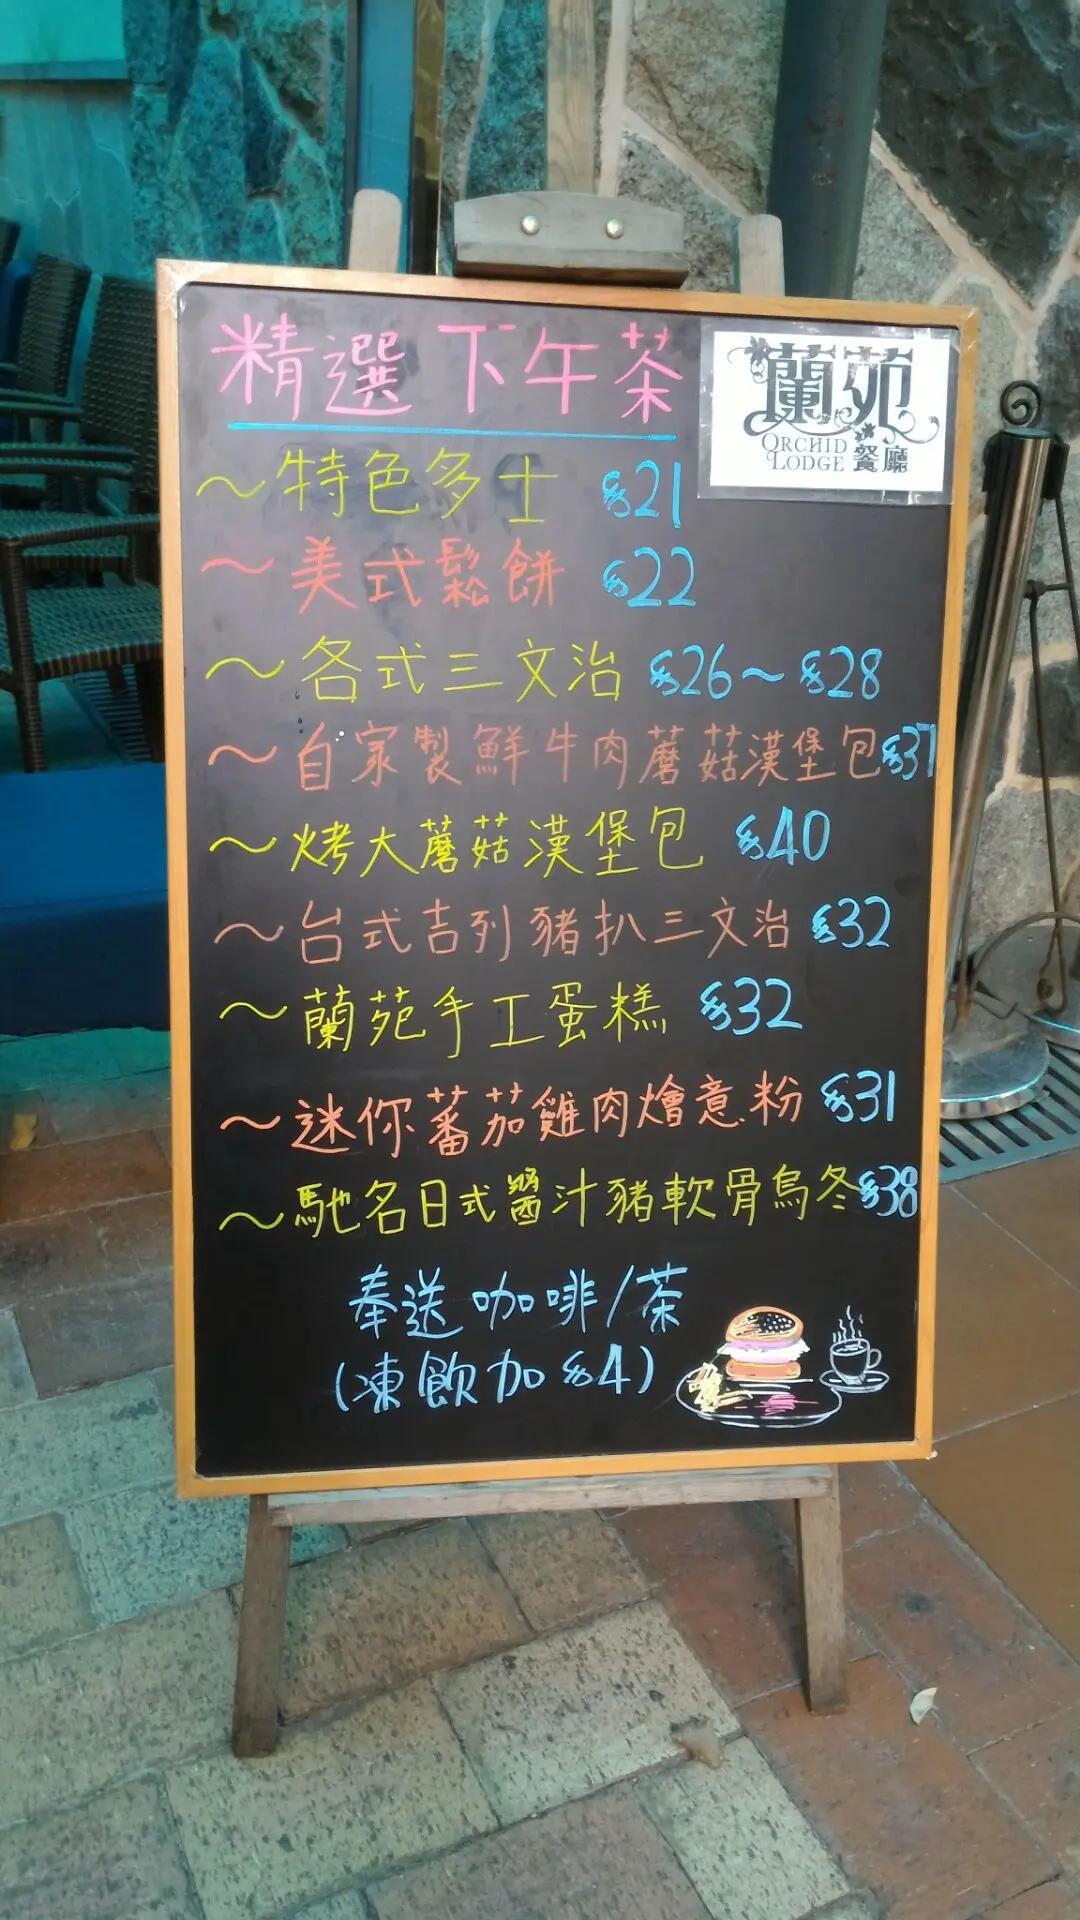 精選下午茶
蘭苑
ORCHID
LODGE 餐廳
～特色多士 $21
～美式鬆餅 $22
～各式三文治 $26～$28
～自家製鮮牛肉蘑菇漢堡包$37
～烤大蘑菇漢堡包 $40
～台式吉列豬扒三文治 $32
～蘭苑手工蛋糕 $32
～迷你蕃茄雞肉燴意粉 $31
～馳名日式醬汁豬軟骨烏冬$38
奉送咖啡/茶
(凍飲加$4)